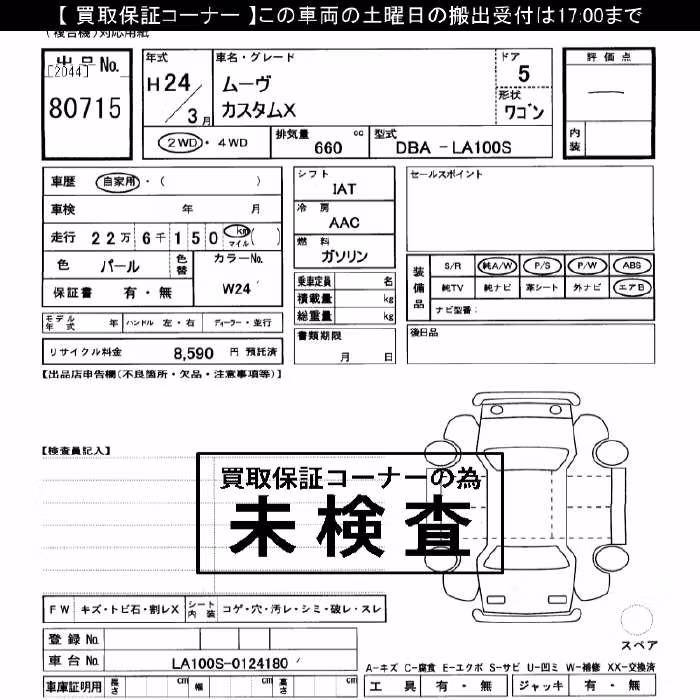 【 買取保証コーナー 】この車両の土曜日の搬出受付は17:00まで
(複合機)対応用紙
出品No.
[2044]
80715
年式
H24
3月
車名・グレード
ムーヴ
カスタムX
ドア
5
形状
ワゴン
評価点
―
内装
2WD・4WD
排気量 cc
660
型式
DBA - LA100S
車歴 自家用・( )
車検 年 月
走行 22万 6千150 km マイル ( )
色 パール 色替
カラーNo.
W24
保証書 有・無
シフト
IAT
冷房
AAC
燃料
ガソリン
乗車定員 名
積載量 kg
総重量 kg
セールスポイント
装備品
S/R 純A/W P/S P/W ABS
純TV 純ナビ 革シート 外ナビ エアB
ナビ型番:
モデル年式 年 ハンドル 左・右 ディーラー・並行
リサイクル料金 8,590 円 預託済
書類期限
月 日
後日品
【出品店申告欄(不良箇所・欠品・注意事項等)】
【検査員記入】
買取保証コーナーの為
未検査
FW キズ・トビ石・割レX シート内装 コゲ・穴・汚レ・シミ・破レ・スレ
スペア
登録No.
車台No. LA100S-0124180
車庫証明用 長さ cm 幅 cm 高さ cm
A-キズ C-腐食 E-エクボ S-サビ U-凹ミ W-補修 XX-交換済
工具 有・無 ジャッキ 有・無